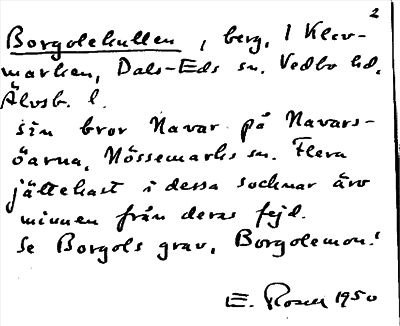 2
Borgolekullen, berg, i Klev-
marken, Dals-Eds sn. Vedbo hd.
Älvsb. l.
sin bror Navar på Navars-
öarna, Nössemarks sn. Flera
jättekast i dessa socknar äro
minnen från deras fejd.
Se Borgols grav, Borgolemon!
E. Rosell 1950